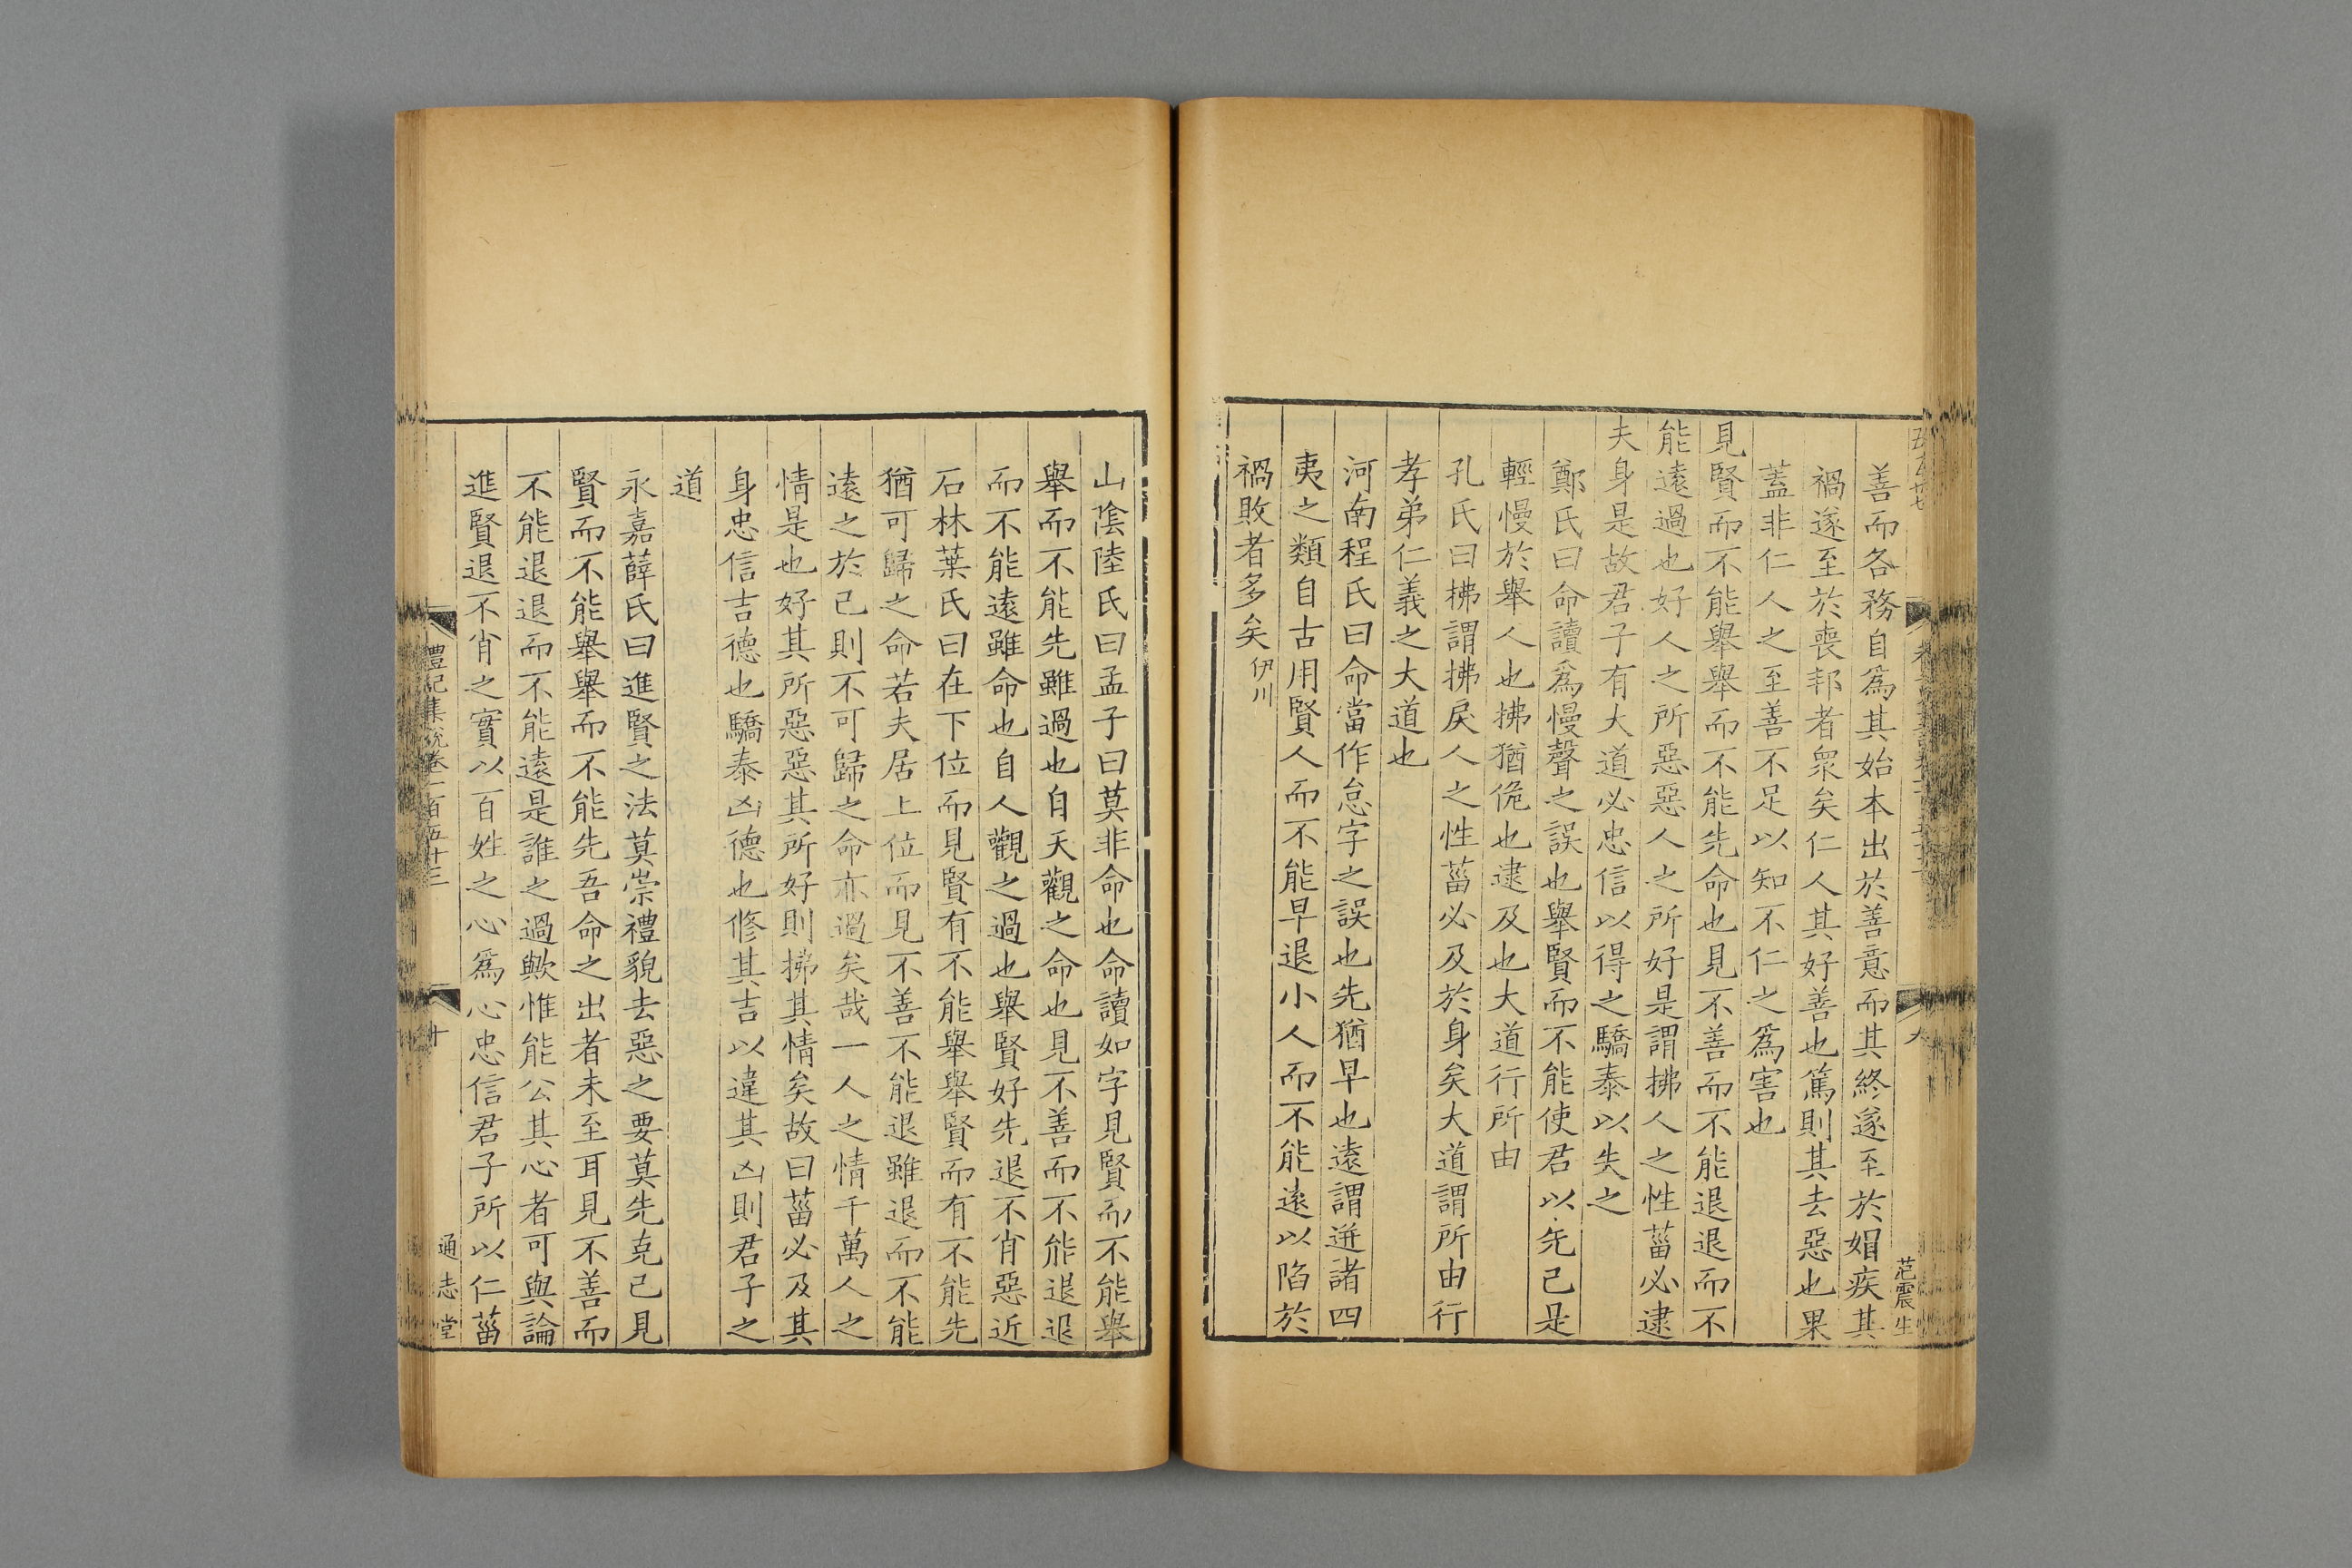 善而各務自為其始本出於善意而其終遂至於媢疾其
禍遂至於喪邦者衆矣仁人其好善也篤則其去惡也果
蓋非仁人之至善不足以知不仁之為害也
見賢而不能舉舉而不能先命也見不善而不能退退而不
能遠過也好人之所惡惡人之所好是謂拂人之性菑必逮
夫身是故君子有大道必忠信以得之驕泰以失之
鄭氏曰命讀為慢聲之誤也舉賢而不能使君以先己是
輕慢於舉人也拂猶佹也逮及也大道行所由
孔氏曰拂謂拂戾人之性菑必及於身矣大道謂所由行
孝弟仁義之大道也
河南程氏曰命當作怠字之誤也先猶早也遠謂迸諸四
夷之類自古用賢人而不能早退小人而不能遠以陷於
禍敗者多矣伊川
范震生
山陰陸氏曰孟子曰莫非命也命讀如字見賢而不能舉
舉而不能先雖過也自天觀之命也見不善而不能退退
而不能遠雖命也自人觀之過也舉賢好先退不肖惡近
石林葉氏曰在下位而見賢有不能舉舉賢而有不能先
猶可歸之命若夫居上位而見不善不能退雖退而不能
遠之於己則不可歸之命亦過矣哉一人之情千萬人之
情是也好其所惡惡其所好則拂其情矣故曰菑必及其
身忠信吉德也驕泰凶德也修其吉以違其凶則君子之
道
永嘉薛氏曰進賢之法莫崇禮貌去惡之要莫先克己見
賢而不能舉舉而不能先吾命之出者未至耳見不善而
不能退退而不能遠是誰之過歟惟能公其心者可與論
進賢退不肖之實以百姓之心為心忠信君子所以仁菑
禮記集說卷一百五十三
十
通志堂